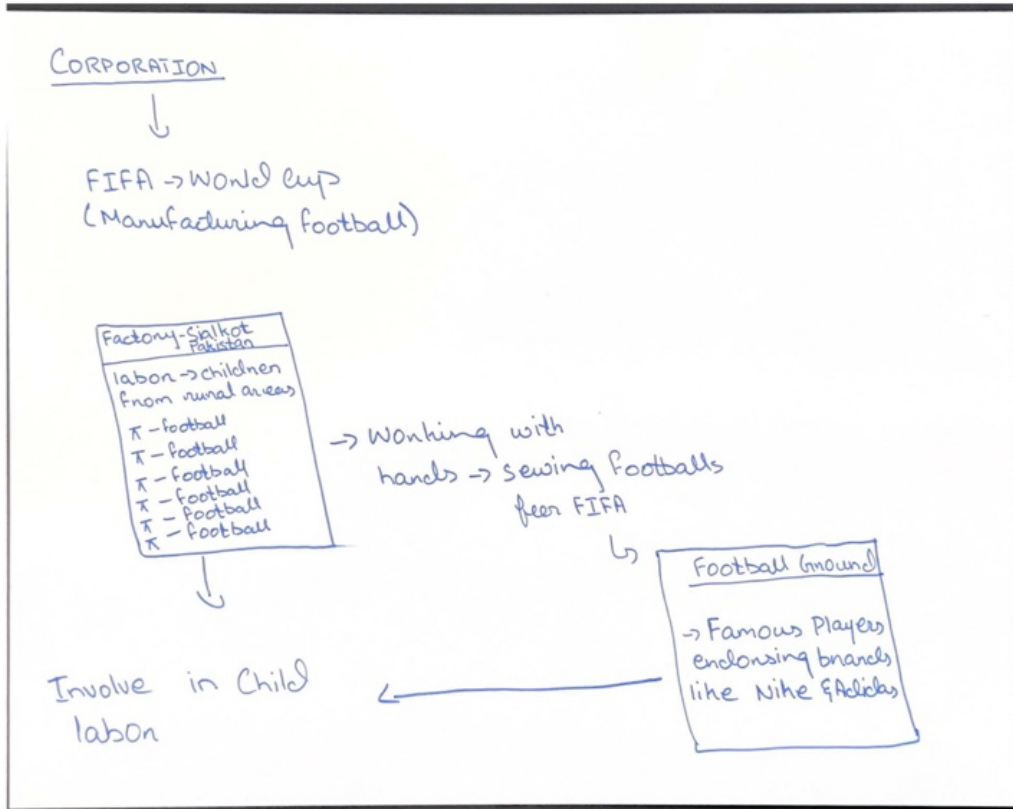 CORPORATION
FIFA → World cup
(Manufacturing football)
Factory-Sialkot
Pakistan
labor → children
from rural areas
π - football
π - football
π - football
π - football
π - football
π - football
→ Working with
hands → sewing footballs
feer FIFA
Football Ground
→ Famous Players
endorsing brands
like Nike & Adidas
Involve in Child
labor